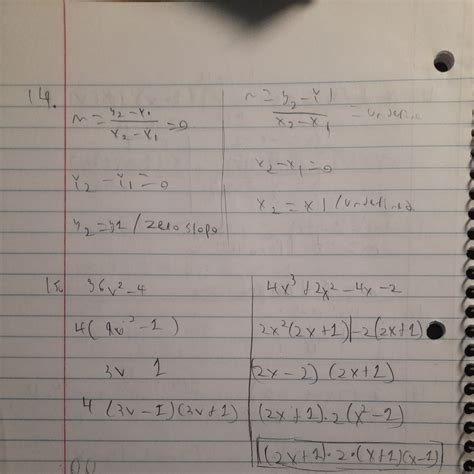 14.
m = y2-y1 / x2-x1 = 0
y2 - y1 = 0
y2 = y1 / zero slope
m = y2-y1 / x2-x1 = undefine
x2-x1=0
x2 = x1 / undefined
15. 36v²-4
4(9v²-1)
3v 1
4 (3v-1)(3v+1)
4x³+2x²-4x-2
2x²(2x+1)-2(2x+1)
(2x-2) (2x+1)
(2x+1)·2(x²-1)
(2x+1)·2·(x+1)(x-1)